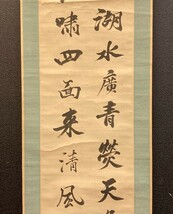 湖水廣青熒天
嘯四面来清風